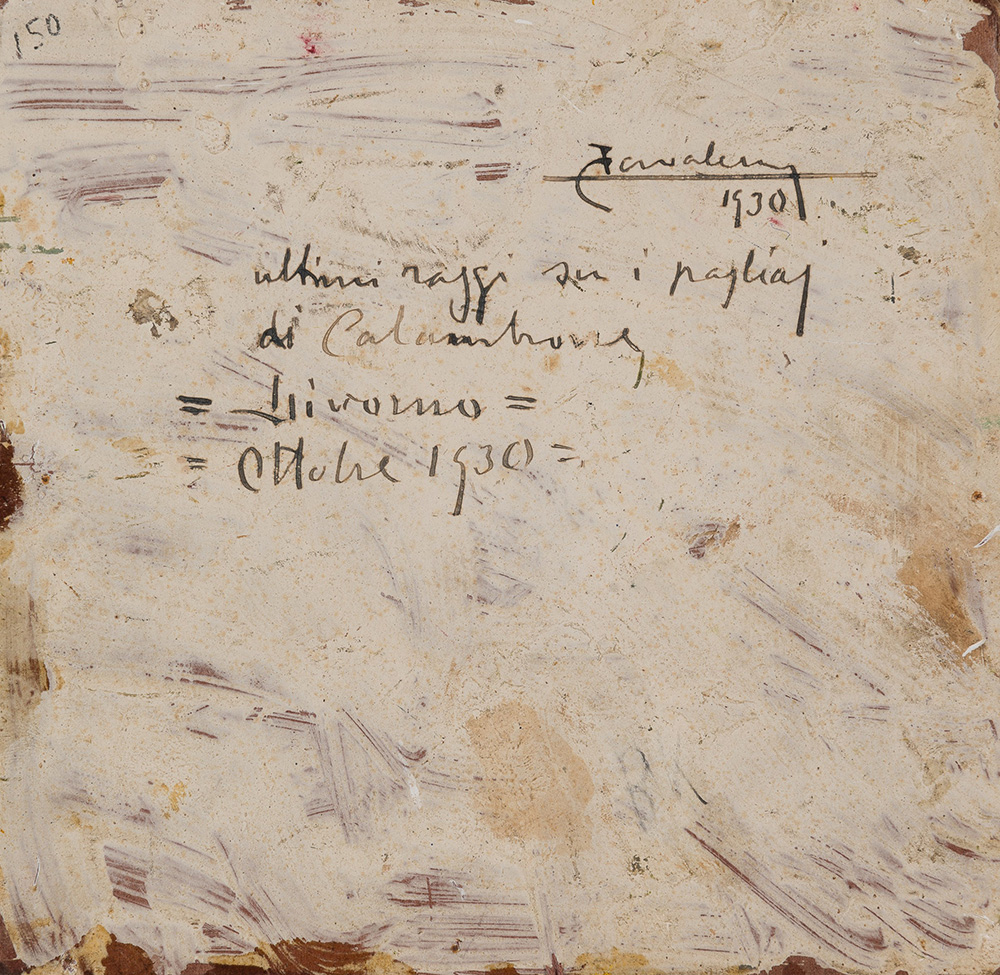 150
1930
ultimi raggi su i pagliaj
di Calambrone,
= Livorno =
= Ottobre 1930 =